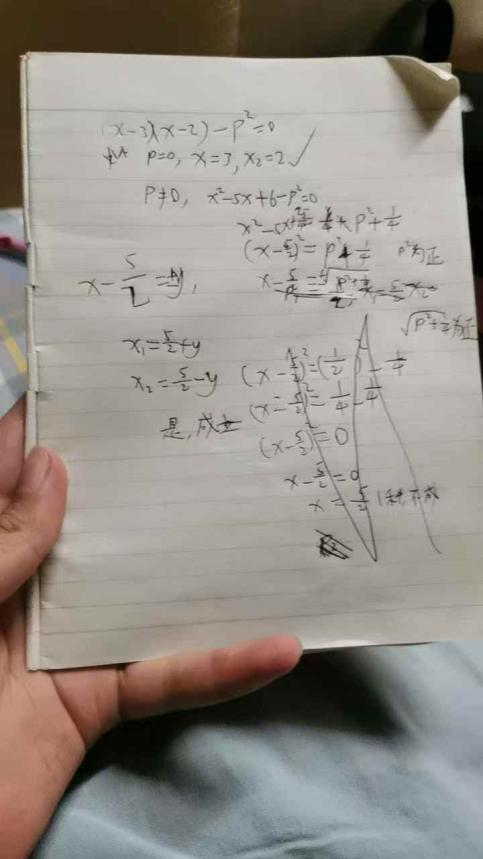 (x-3)(x-2)-p²=0
p=0, x=3, x₂=2 ✓
P≠0, x²-5x+6-p²=0
x²-5x+25/4 = p²+1/4
(x-5/2)²=p²+1/4 p²为正
x-5/2=±y,
√p²+1/4为正
x₁=5/2+y
x₂=5/2-y
是,成立
(x-5/2)²=(1/2)-1/4
(x-5/2)²=1/4-1/4
(x-5/2)²=0
x-5/2=0
x=5/2